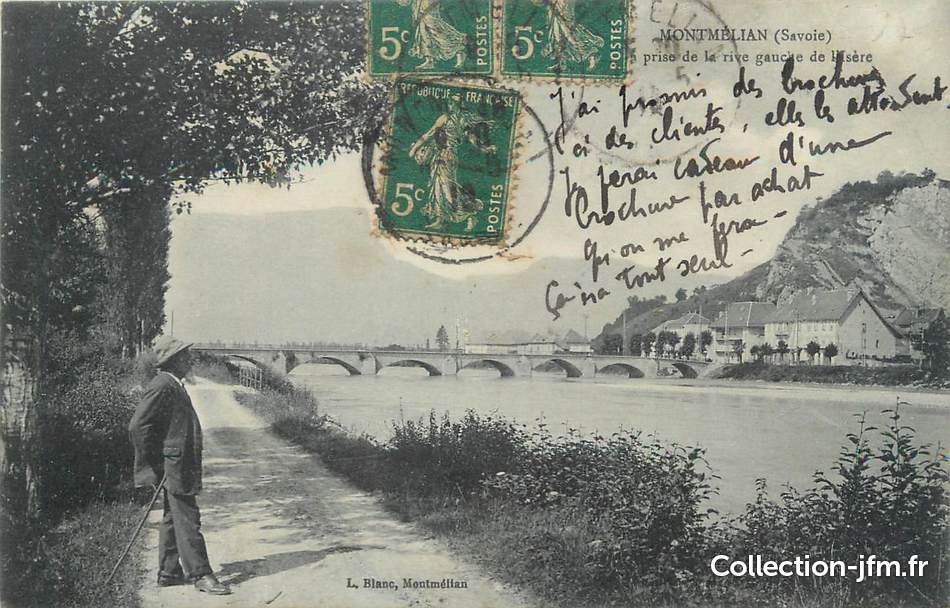 MONTMÉLIAN (Savoie)
prise de la rive gauche de l'Isère
5c POSTES
5c POSTES
REPUBLIQUE FRANÇAISE
5c POSTES
J'ai promis des brochures
ci des clientes, elles les attendent
Je ferai cadeau d'une
brochure par achat
qu'on me fera -
Ça ira tout seul -
L. Blanc, Montmélian
Collection-jfm.fr